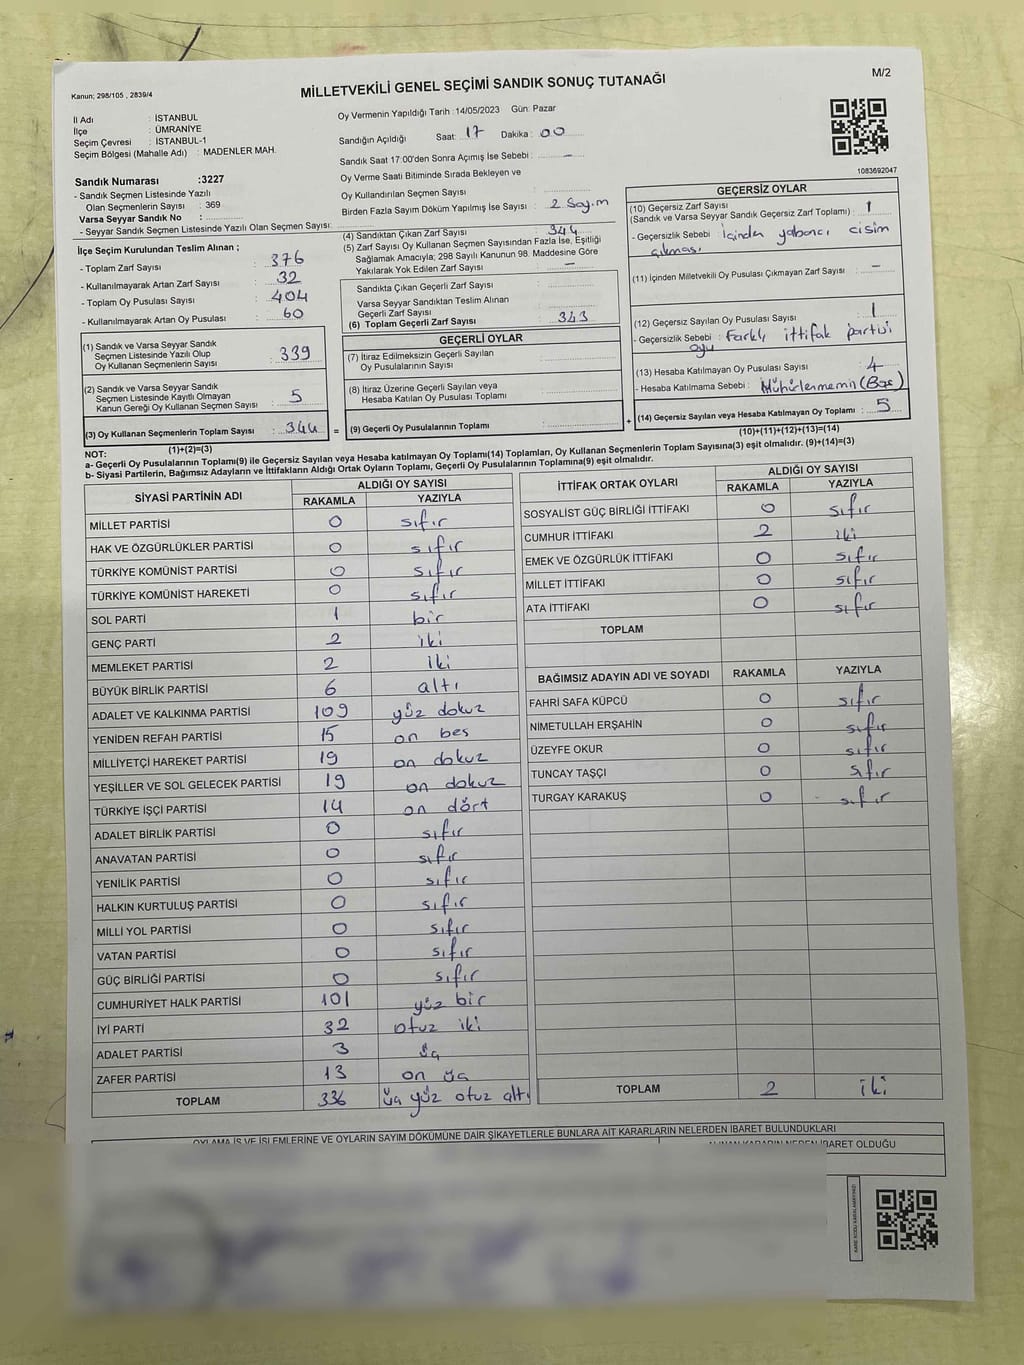 Kanun; 298/105 , 2839/4
MİLLETVEKİLİ GENEL SEÇİMİ SANDIK SONUÇ TUTANAĞI
M/2
İl Adı : İSTANBUL
İlçe : ÜMRANİYE
Seçim Çevresi : İSTANBUL-1
Seçim Bölgesi (Mahalle Adı) : MADENLER MAH.
Oy Vermenin Yapıldığı Tarih :14/05/2023 Gün: Pazar
Sandığın Açıldığı Saat: 17 Dakika: 00
Sandık Saat 17:00'den Sonra Açımış İse Sebebi : –
Oy Verme Saati Bitiminde Sırada Bekleyen ve
Oy Kullandırılan Seçmen Sayısı :
Birden Fazla Sayım Döküm Yapılmış İse Sayısı : 2 Sayım
1083692047
Sandık Numarası :3227
- Sandık Seçmen Listesinde Yazılı
Olan Seçmenlerin Sayısı : 369
Varsa Seyyar Sandık No :
- Seyyar Sandık Seçmen Listesinde Yazılı Olan Seçmen Sayısı:
İlçe Seçim Kurulundan Teslim Alınan ;
- Toplam Zarf Sayısı : 376
- Kullanılmayarak Artan Zarf Sayısı : 32
- Toplam Oy Pusulası Sayısı : 404
- Kullanılmayarak Artan Oy Pusulası : 60
(1) Sandık ve Varsa Seyyar Sandık
Seçmen Listesinde Yazılı Olup
Oy Kullanan Seçmenlerin Sayısı : 339
(2) Sandık ve Varsa Seyyar Sandık
Seçmen Listesinde Kayıtlı Olmayan
Kanun Gereği Oy Kullanan Seçmen Sayısı : 5
(3) Oy Kullanan Seçmenlerin Toplam Sayısı : 344 =
(1)+(2)=(3)
(4) Sandıktan Çıkan Zarf Sayısı : 344
(5) Zarf Sayısı Oy Kullanan Seçmen Sayısından Fazla İse, Eşitliği
Sağlamak Amacıyla; 298 Sayılı Kanunun 98. Maddesine Göre
Yakılarak Yok Edilen Zarf Sayısı : –
Sandıkta Çıkan Geçerli Zarf Sayısı :
Varsa Seyyar Sandıktan Teslim Alınan
Geçerli Zarf Sayısı :
(6) Toplam Geçerli Zarf Sayısı : 343
GEÇERLİ OYLAR
(7) İtiraz Edilmeksizin Geçerli Sayılan
Oy Pusulalarının Sayısı :
(8) İtiraz Üzerine Geçerli Sayılan veya
Hesaba Katılan Oy Pusulası Toplamı :
(9) Geçerli Oy Pusulalarının Toplamı : +
GEÇERSİZ OYLAR
(10) Geçersiz Zarf Sayısı
(Sandık ve Varsa Seyyar Sandık Geçersiz Zarf Toplamı) : 1
- Geçersizlik Sebebi : İçinden yabancı cisim
çıkması
(11) İçinden Milletvekili Oy Pusulası Çıkmayan Zarf Sayısı : –
(12) Geçersiz Sayılan Oy Pusulası Sayısı : 1
- Geçersizlik Sebebi : Farklı ittifak partisi
oyu
(13) Hesaba Katılmayan Oy Pusulası Sayısı : 4
- Hesaba Katılmama Sebebi :
(14) Geçersiz Sayılan veya Hesaba Katılmayan Oy Toplamı : 5
(10)+(11)+(12)+(13)=(14)
NOT:
a- Geçerli Oy Pusulasının Toplamı(9) ile Geçersiz Sayılan veya Hesaba katılmayan Oy Toplamı(14) Toplamları, Oy Kullanan Seçmenlerin Toplam Sayısına(3) eşit olmalıdır. (9)+(14)=(3)
b- Siyasi Partilerin, Bağımsız Adayların ve İttifakların Aldığı Ortak Oyların Toplamı, Geçerli Oy Pusulalarının Toplamına(9) eşit olmalıdır.
SİYASİ PARTİNİN ADI ALDIĞI OY SAYISI
RAKAMLA YAZIYLA
MİLLET PARTİSİ 0 sıfır
HAK VE ÖZGÜRLÜKLER PARTİSİ 0 sıfır
TÜRKİYE KOMÜNİST PARTİSİ 0 sıfır
TÜRKİYE KOMÜNİST HAREKETİ 0 sıfır
SOL PARTİ 1 bir
GENÇ PARTİ 2 iki
MEMLEKET PARTİSİ 2 iki
BÜYÜK BİRLİK PARTİSİ 6 altı
ADALET VE KALKINMA PARTİSİ 109 yüz dokuz
YENİDEN REFAH PARTİSİ 15 on beş
MİLLİYETÇİ HAREKET PARTİSİ 19 on dokuz
YEŞİLLER VE SOL GELECEK PARTİSİ 19 on dokuz
TÜRKİYE İŞÇİ PARTİSİ 14 on dört
ADALET BİRLİK PARTİSİ 0 sıfır
ANAVATAN PARTİSİ 0 sıfır
YENİLİK PARTİSİ 0 sıfır
HALKIN KURTULUŞ PARTİSİ 0 sıfır
MİLLİ YOL PARTİSİ 0 sıfır
VATAN PARTİSİ 0 sıfır
GÜÇ BİRLİĞİ PARTİSİ 0 sıfır
CUMHURİYET HALK PARTİSİ 101 yüz bir
İYİ PARTİ 32 otuz iki
ADALET PARTİSİ 3 üç
ZAFER PARTİSİ 13 on üç
TOPLAM 336 üç yüz otuz altı
İTTİFAK ORTAK OYLARI ALDIĞI OY SAYISI
RAKAMLA YAZIYLA
SOSYALİST GÜÇ BİRLİĞİ İTTİFAKI 0 sıfır
CUMHUR İTTİFAKI 2 iki
EMEK VE ÖZGÜRLÜK İTTİFAKI 0 sıfır
MİLLET İTTİFAKI 0 sıfır
ATA İTTİFAKI 0 sıfır
TOPLAM
BAĞIMSIZ ADAYIN ADI VE SOYADI RAKAMLA YAZIYLA
FAHRİ SAFA KÜPCÜ 0 sıfır
NİMETULLAH ERŞAHİN 0 sıfır
ÜZEYFE OKUR 0 sıfır
TUNCAY TAŞÇI 0 sıfır
TURGAY KARAKUŞ 0 sıfır
TOPLAM 2 iki
OYLAMA İŞ VE İŞLEMLERİNE VE OYLARIN SAYIM DÖKÜMÜNE DAİR ŞİKAYETLERLE BUNLARA AİT KARARLARIN NELERDEN İBARET BULUNDUKLARI
ALINAN KARARIN NEDEN İBARET OLDUĞU